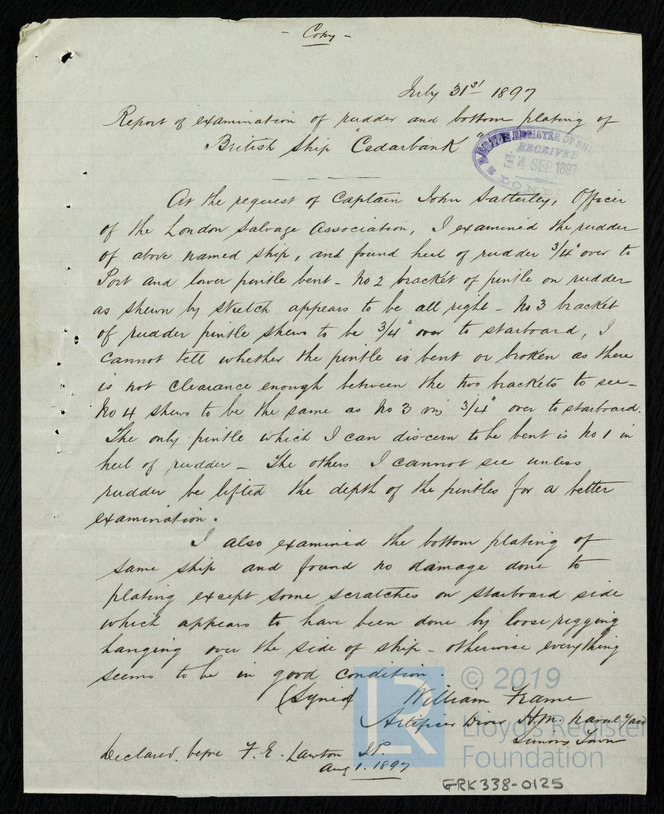 - Copy -
July 31st 1897
Report of examination of rudder and bottom plating of
British Ship "Cedarbank"
REGISTER OF
RECEIVED
4 SEP. 1897
LONDON
At the request of Captain John Satterley, Officer
of the London Salvage Association, I examined the rudder
of above named ship, and found heel of rudder 3/4" over to
Port and lower pintle bent - No 2 bracket of pintle on rudder
as shewn by sketch appears to be all right - No 3 bracket
of rudder pintle shews to be 3/4" over to starboard, I
cannot tell whether the pintle is bent or broken as there
is not clearance enough between the two brackets to see -
No 4 shews to be the same as No 3 viz 3/4" over to starboard.
The only pintle which I can discern to be bent is No 1 in
heel of rudder - The others I cannot see unless
rudder be lifted the depth of the pintles for a better
examination.
I also examined the bottom plating of
same ship and found no damage done to
plating except some scratches on starboard side
which appears to have been done by loose rigging
hanging over the side of ship - otherwise everything
seems to be in good condition.
(Signed) William Frame
Artificer Diver H.M. Naval Yard
Simons Town
Declared before F. E. Lawton J.P.
Aug 1. 1897
© 2019
LR
Lloyd's Register
Foundation
GRK338-0125